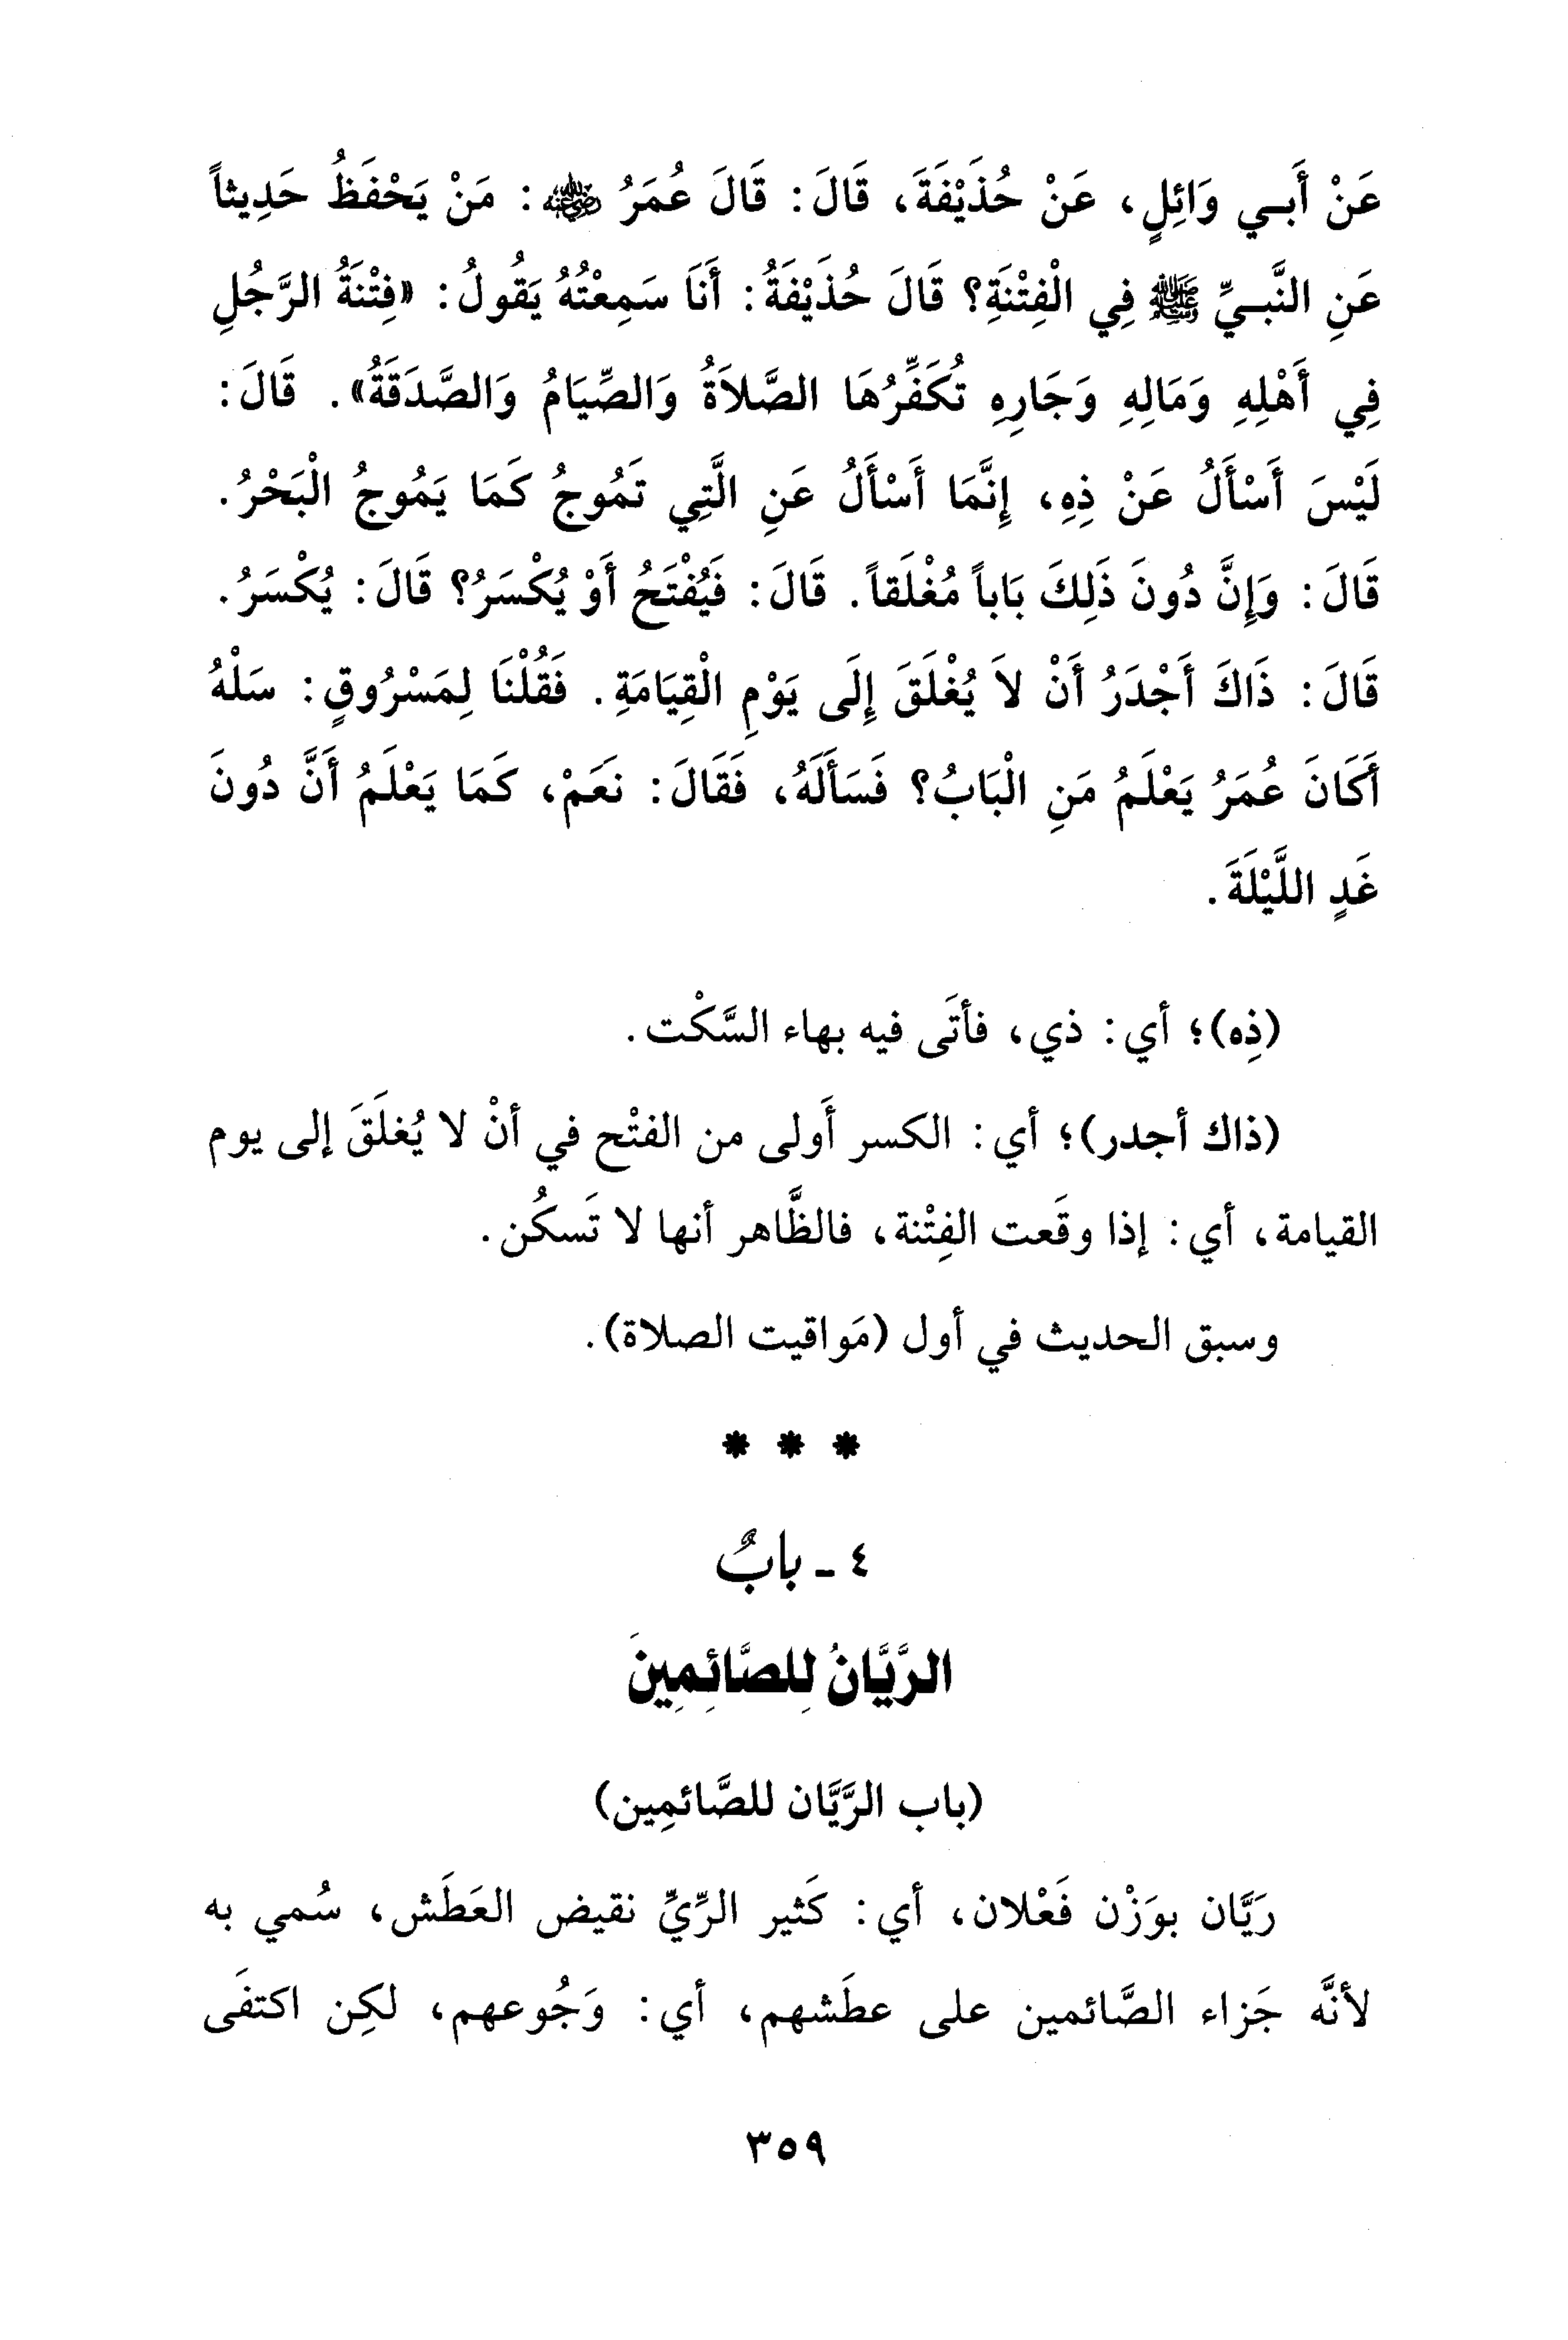 عَنْ أَبِي وَائِلٍ، عَنْ حُذَيْفَةَ، قَالَ: قَالَ عُمَرُ رضي الله عنه: مَنْ يَحْفَظُ حَدِيثاً
عَنِ النَّبِيِّ ﷺ فِي الْفِتْنَةِ؟ قَالَ حُذَيْفَةُ: أَنَا سَمِعْتُهُ يَقُولُ: «فِتْنَةُ الرَّجُلِ
فِي أَهْلِهِ وَمَالِهِ وَجَارِهِ تُكَفِّرُهَا الصَّلاَةُ وَالصِّيَامُ وَالصَّدَقَةُ». قَالَ:
لَيْسَ أَسْأَلُ عَنْ ذِهِ، إِنَّمَا أَسْأَلُ عَنِ الَّتِي تَمُوجُ كَمَا يَمُوجُ الْبَحْرُ.
قَالَ: وَإِنَّ دُونَ ذَلِكَ بَاباً مُغْلَقاً. قَالَ: فَيُفْتَحُ أَوْ يُكْسَرُ؟ قَالَ: يُكْسَرُ.
قَالَ: ذَاكَ أَجْدَرُ أَنْ لاَ يُغْلَقَ إِلَى يَوْمِ الْقِيَامَةِ. فَقُلْنَا لِمَسْرُوقٍ: سَلْهُ
أَكَانَ عُمَرُ يَعْلَمُ مَنِ الْبَابُ؟ فَسَأَلَهُ، فَقَالَ: نَعَمْ، كَمَا يَعْلَمُ أَنَّ دُونَ
غَدٍ اللَّيْلَةَ.
(ذِه)؛ أي: ذي، فأتَى فيه بهاء السَّكْت.
(ذاك أجدر)؛ أي: الكسر أَولى من الفتْح في أنْ لا يُغلَقَ إلى يوم
القيامة، أي: إذا وقَعت الفِتْنة، فالظَّاهر أنها لا تَسكُن.
وسبق الحديث في أول (مَواقيت الصلاة).
* * *
٤ - بابٌ
الرَّيَّانُ لِلصَّائِمِينَ
(باب الرَّيَّان للصَّائمِين)
رَيَّان بوَزْن فَعْلان، أي: كَثير الرِّيِّ نقيض العَطَش، سُمي به
لأنَّه جَزاء الصَّائمين على عطَشهم، أي: وَجُوعهم، لكِن اكتفَى
٣٥٩